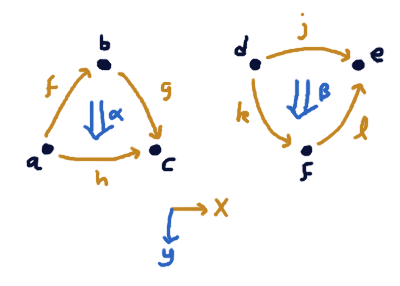 b
f
g
α
a
h
c
j
d
e
k
β
l
f
x
y